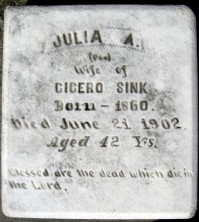 JULIA A.
Wife of
CICERO SINK
Born - 1860.
Died June 21 1902.
Aged 42 Yrs.
Blessed are the dead which die in
the Lord.